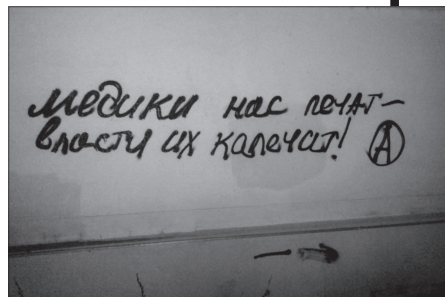 медики нас лечат–
власти их калечат! Ⓐ